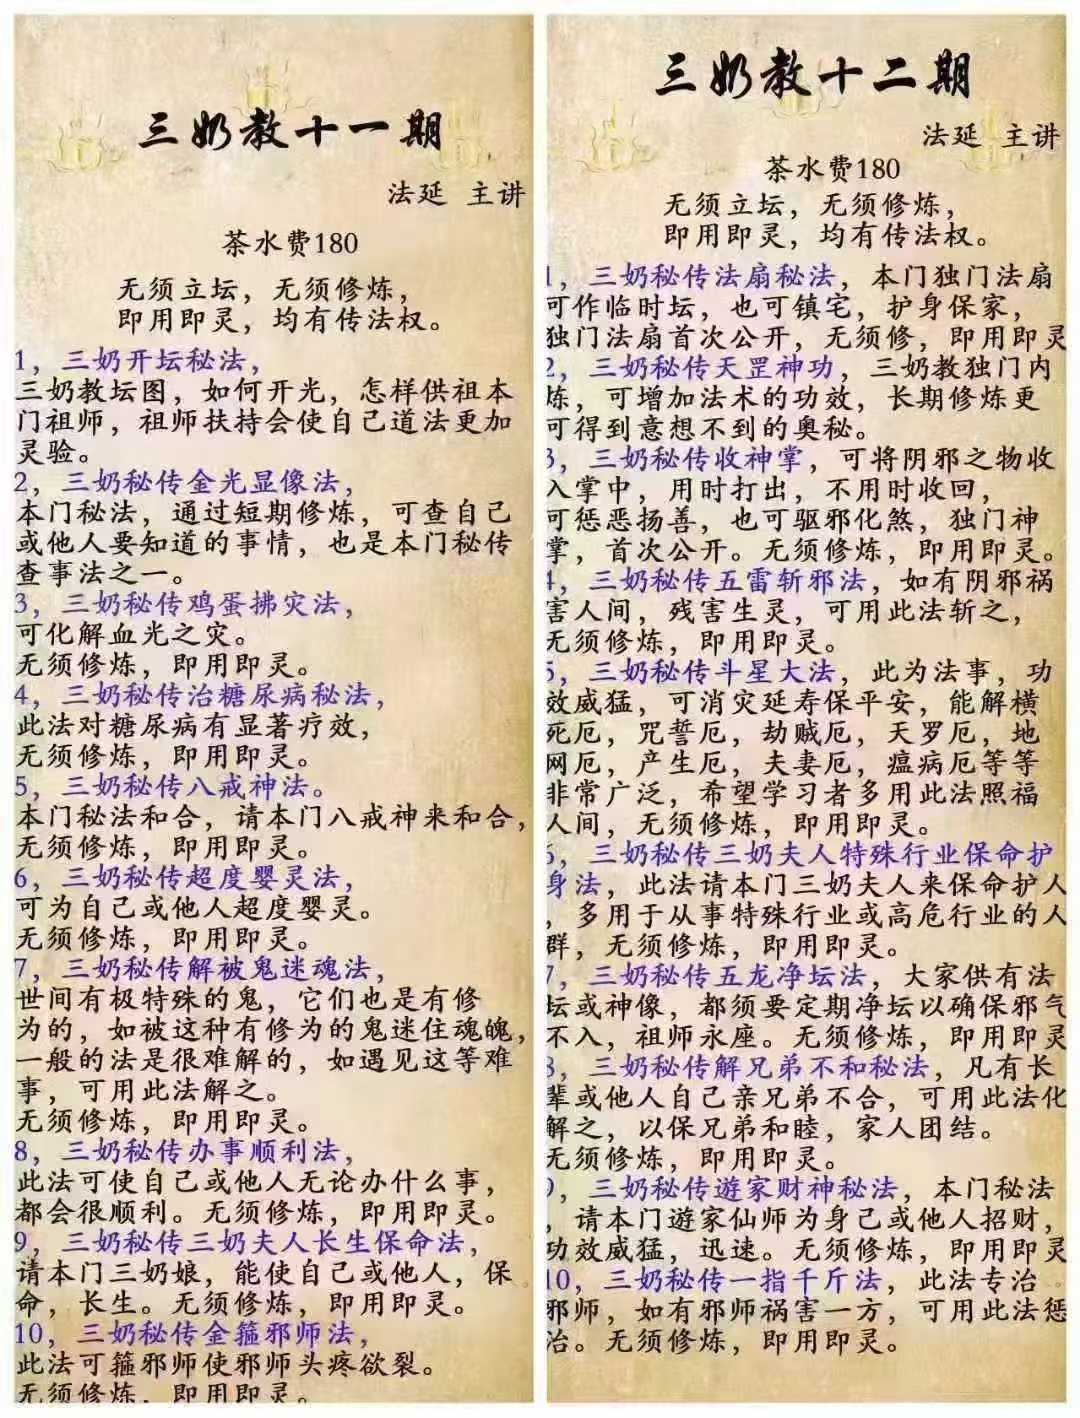 三奶教十一期
法延 主讲
茶水费180
无须立坛，无须修炼，
即用即灵，均有传法权。
1，三奶开坛秘法，
三奶教坛图，如何开光，怎样供祖本
门祖师，祖师扶持会使自己道法更加
灵验。
2，三奶秘传金光显像法，
本门秘法，通过短期修炼，可查自己
或他人要知道的事情，也是本门秘传
查事法之一。
3，三奶秘传鸡蛋拂灾法，
可化解血光之灾。
无须修炼，即用即灵。
4，三奶秘传治糖尿病秘法，
此法对糖尿病有显著疗效，
无须修炼，即用即灵。
5，三奶秘传八戒神法。
本门秘法和合，请本门八戒神来和合，
无须修炼，即用即灵。
6，三奶秘传超度婴灵法，
可为自己或他人超度婴灵。
无须修炼，即用即灵。
7，三奶秘传解被鬼迷魂法，
世间有极特殊的鬼，它们也是有修
为的，如被这种有修为的鬼迷住魂魄，
一般的法是很难解的，如遇见这等难
事，可用此法解之。
无须修炼，即用即灵。
8，三奶秘传办事顺利法，
此法可使自己或他人无论办什么事，
都会很顺利。无须修炼，即用即灵。
9，三奶秘传三奶夫人长生保命法，
请本门三奶娘，能使自己或他人，保
命，长生。无须修炼，即用即灵。
10，三奶秘传金箍邪师法，
此法可箍邪师使邪师头疼欲裂。
无须修炼，即用即灵。
三奶教十二期
法延 主讲
茶水费180
无须立坛，无须修炼，
即用即灵，均有传法权。
1，三奶秘传法扇秘法，本门独门法扇
可作临时坛，也可镇宅，护身保家，
独门法扇首次公开，无须修，即用即灵
2，三奶秘传天罡神功，三奶教独门内
炼，可增加法术的功效，长期修炼更
可得到意想不到的奥秘。
3，三奶秘传收神掌，可将阴邪之物收
入掌中，用时打出，不用时收回，
可惩恶扬善，也可驱邪化煞，独门神
掌，首次公开。无须修炼，即用即灵。
4，三奶秘传五雷斩邪法，如有阴邪祸
害人间，残害生灵，可用此法斩之，
无须修炼，即用即灵。
5，三奶秘传斗星大法，此为法事，功
效威猛，可消灾延寿保平安，能解横
死厄，咒誓厄，劫贼厄，天罗厄，地
网厄，产生厄，夫妻厄，瘟病厄等等
非常广泛，希望学习者多用此法照福
人间，无须修炼，即用即灵。
6，三奶秘传三奶夫人特殊行业保命护
身法，此法请本门三奶夫人来保命护人
，多用于从事特殊行业或高危行业的人
群，无须修炼，即用即灵。
7，三奶秘传五龙净坛法，大家供有法
坛或神像，都须要定期净坛以确保邪气
不入，祖师永座。无须修炼，即用即灵
8，三奶秘传解兄弟不和秘法，凡有长
辈或他人自己亲兄弟不合，可用此法化
解之，以保兄弟和睦，家人团结。
无须修炼，即用即灵。
9，三奶秘传遊家财神秘法，本门秘法
，请本门遊家仙师为身己或他人招财，
功效威猛，迅速。无须修炼，即用即灵
10，三奶秘传一指千斤法，此法专治
邪师，如有邪师祸害一方，可用此法惩
治。无须修炼，即用即灵。